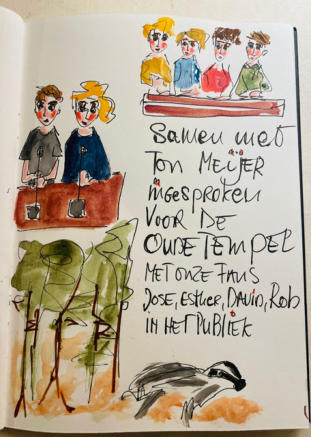 Samen met
Ton Meijer
ingesproken
Voor de
Oude Tempel
Met onze fans
Jose, Esther, David, Rob
in het publiek